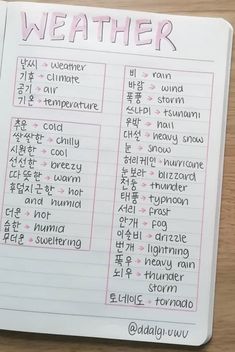 WEATHER
날씨 → weather
기후 → climate
공기 → air
기온 → temperature
추운 → cold
쌀쌀한 → chilly
시원한 → cool
선선한 → breezy
따뜻한 → warm
후덥지근한 → hot
and humid
더운 → hot
습한 → humid
무더운 → sweltering
비 → rain
바람 → wind
폭풍 → storm
쓰나미 → tsunami
우박 → hail
대설 → heavy snow
눈 → snow
허리케인 → hurricane
눈보라 → blizzard
천둥 → thunder
태풍 → typhoon
서리 → frost
안개 → fog
이슬비 → drizzle
번개 → lightning
폭우 → heavy rain
뇌우 → thunder
storm
토네이도 → tornado
@ddalgi.uwu